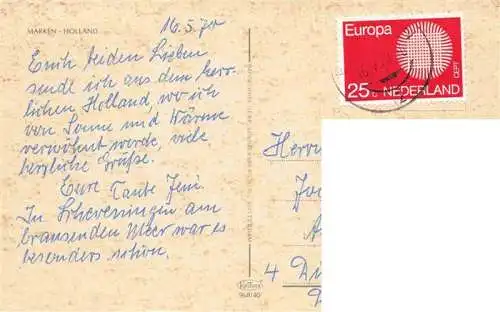 MARKEN - HOLLAND
16.5.70
Euch beiden Lieben
sende ich aus dem herr-
lichen Holland, wo ich
von Sonne und Wärme
verwöhnt werde, viele
herzliche Grüße.
Eure Tante Jeni.
In Scheveningen am
brausenden Meer war es
besonders schön.
Europa
CEPT
25 c NEDERLAND
Herrn
4 Di
968/40